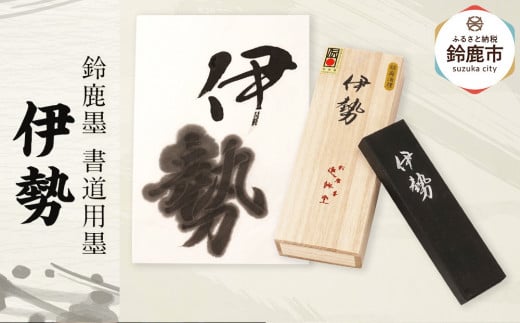 鈴鹿墨 書道用墨
伊勢
伊勢
伊勢
伊勢
ふるさと納税
鈴鹿市
suzuka city